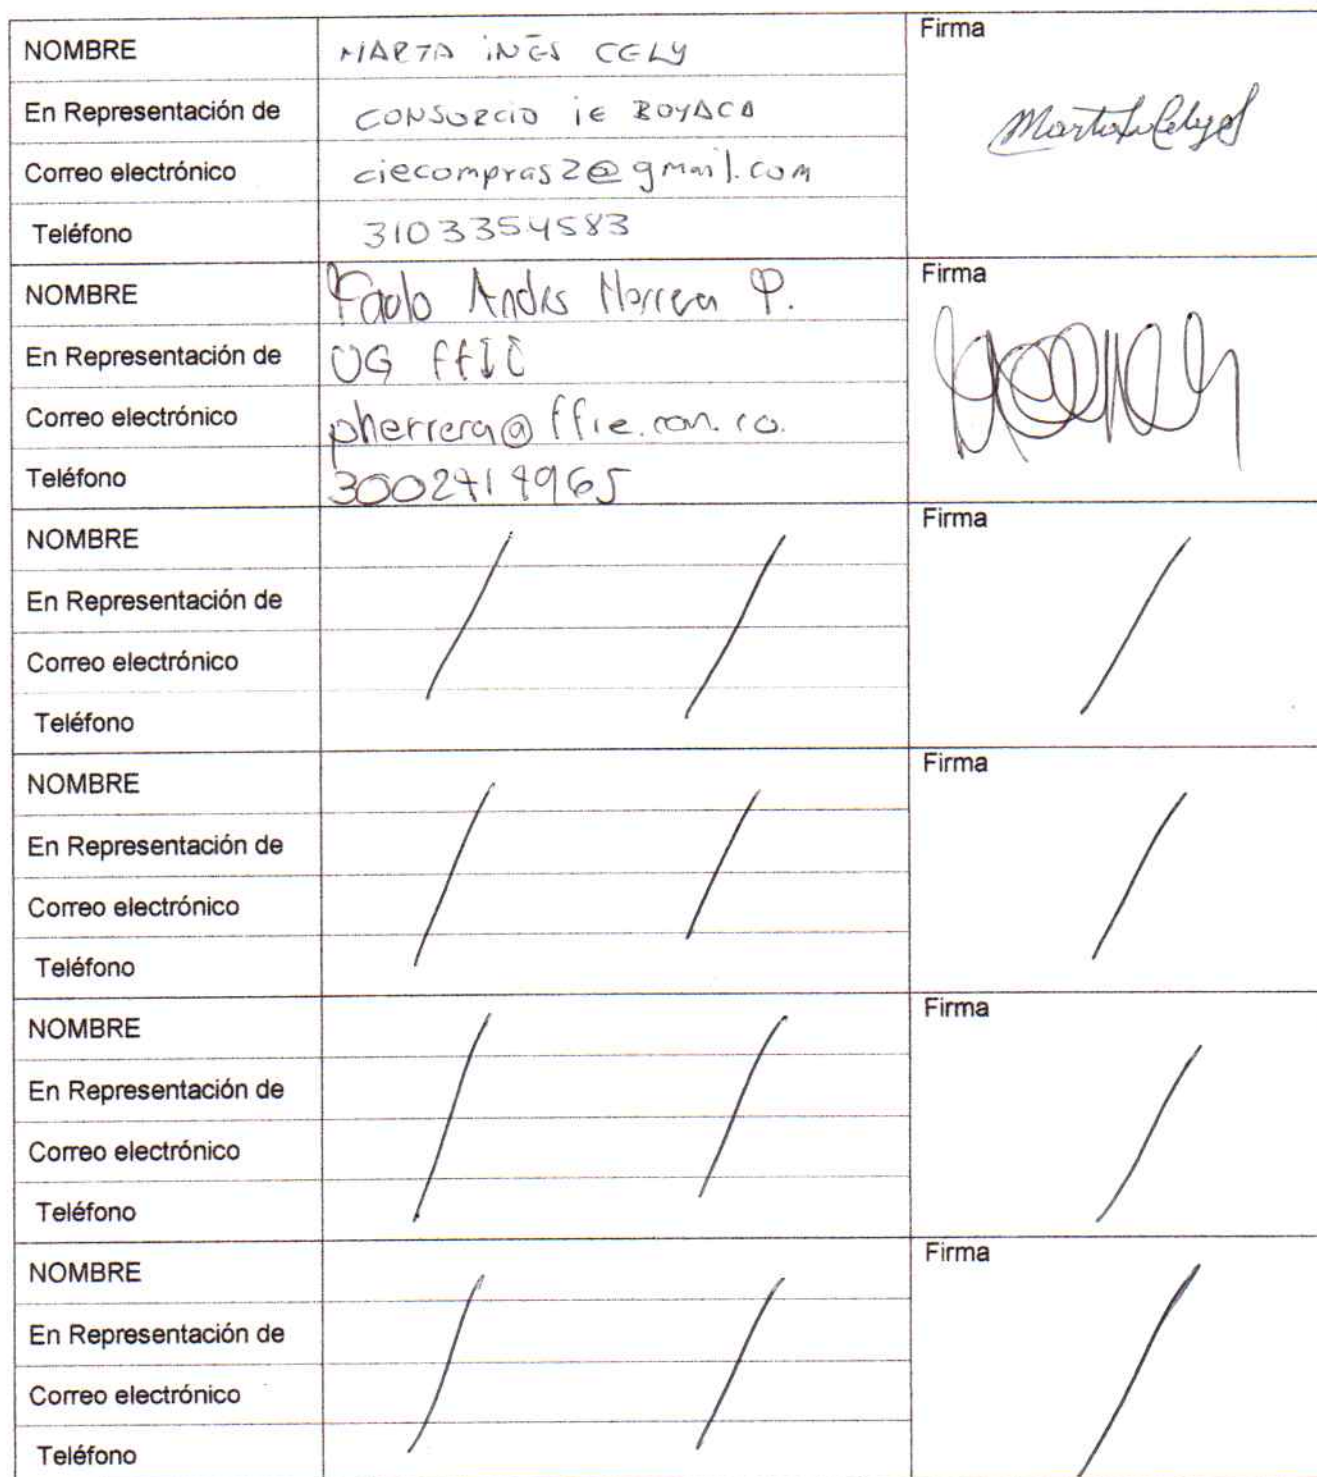 NOMBRE MARTA INÉS CELY Firma
En Representación de CONSORCIO iE BOYACA
Correo electrónico ciecompras2@gmail.com
Teléfono 3103354583
NOMBRE Paolo Andrs Herrera P. Firma
En Representación de UG ffIE
Correo electrónico pherrera@ffie.com.co.
Teléfono
NOMBRE Firma
En Representación de
Correo electrónico
Teléfono
NOMBRE Firma
En Representación de
Correo electrónico
Teléfono
NOMBRE Firma
En Representación de
Correo electrónico
Teléfono
NOMBRE Firma
En Representación de
Correo electrónico
Teléfono